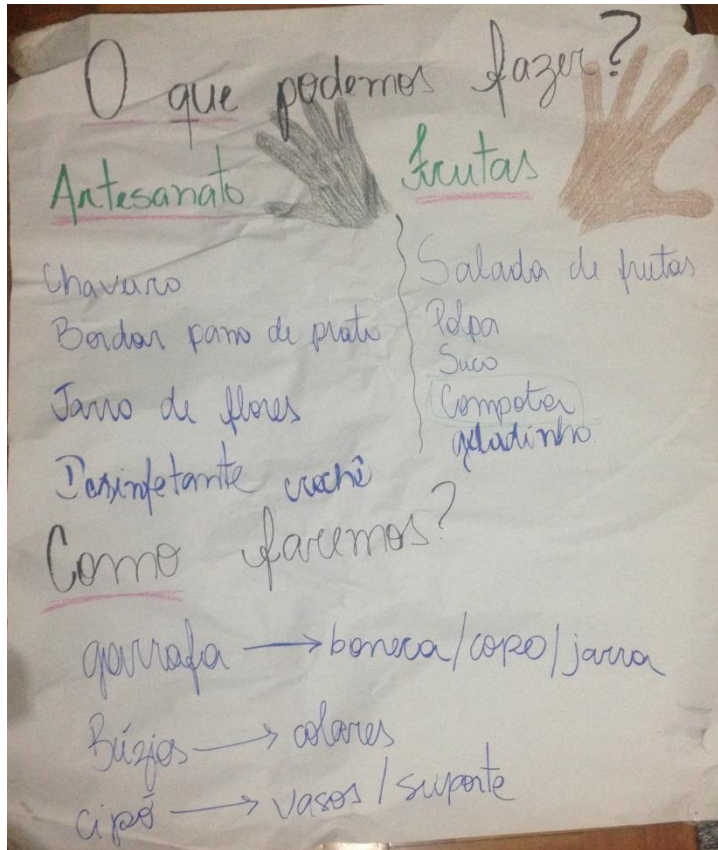 O que podemos fazer?
Artesanato
Chaveiro
Bordar pano de prato
Jarro de flores
Desinfetante crochê
Frutas
Salada de frutas
Polpa
Suco
Compota
geladinho
Como faremos?
garrafa → boneca/copo/jarra
Búzios → colares
cipó → vasos/suporte